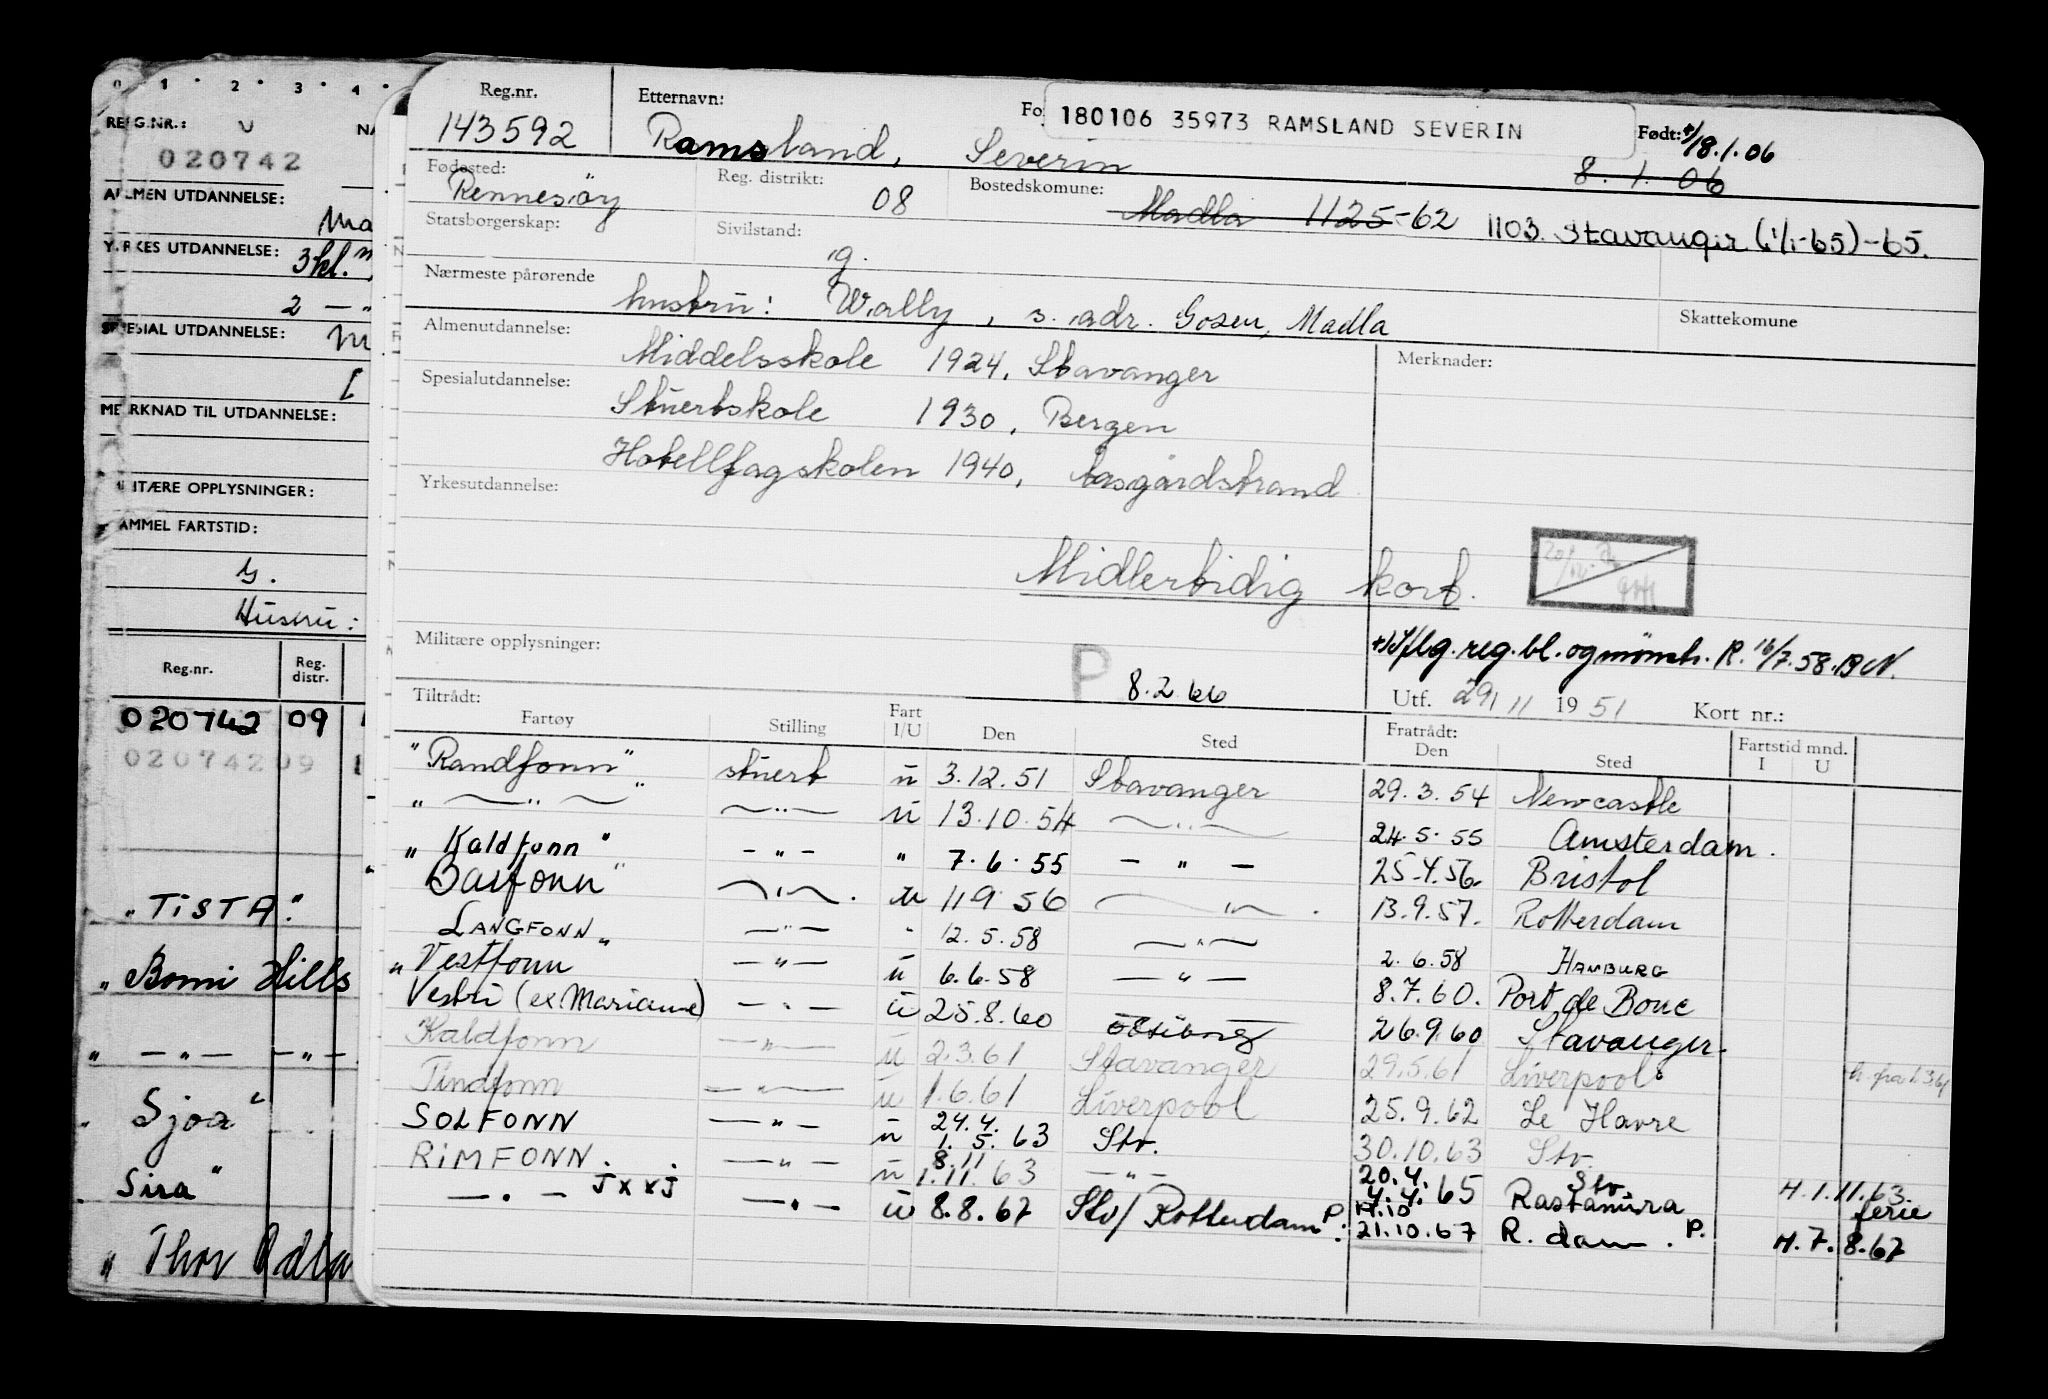 0 1 2 3 4
REG.NR.:
020742
ALMEN UTDANNELSE:
YRKES UTDANNELSE: 3kl.
2 — „
SPESIAL UTDANNELSE:
MERKNAD TIL UTDANNELSE:
MILITÆRE OPPLYSNINGER:
GAMMEL FARTSTID:
g.
Hustru:
Reg.nr. Reg. distr.
020742 09
020742 09
„TISTA"
„Bomi Hills
„ — „ — — „ —
Sjoa"
Sira"
„Thor Odla
Reg.nr. Etternavn: Fo 180106 35973 RAMSLAND SEVERIN Født: +/18.1.06
143592 Ramsland, Severin 8.1.06
Fødested: Reg. distrikt: Bostedskomune:
Rennesöy 08 Madla 1125-62 1103. Stavanger (1/1-65)-65.
Statsborgerskap: Sivilstand:
g.
Nærmeste pårørende
hustru: Wally, s. adr. Gosen, Madla Skattekomune
Almenutdannelse: Middelsskole 1924, Stavanger Merknader:
Spesialutdannelse: Stuertskole 1930, Bergen
Hotellfagskolen 1940, Aasgårdstrand
Yrkesutdannelse:
Midlertidig kort.
Militære opplysninger: +) Iflg. reg. bl. og mönstr. R. 16/7.58. BN.
P 8.2.66 Utf. 29/11 1951 Kort nr.:
Tiltrådt: Fratrådt:
Fartøy Stilling Fart I/U Den Sted Den Sted Fartstid mnd. I U
"Randfonn" stuert u 3.12.51 Stavanger 29.3.54 Newcastle
" — " — " — " — u 13.10.54 — " — 24.5.55 Amsterdam.
„Kaldfonn" — " — " 7.6.55 — " — 25.4.56. Bristol
„Barfonn" — " —. u 11 9 56 — " —. 13.9.57. Rotterdam
LANGFONN„ — " — " 12.5.58 — " — 2.6.58 HAMBURG
„Vestfonn — " — u 6.6.58 — " — 8.7.60. Port de Bouc
Vestri (ex. Marianne) — " — u 25.8.60 26.9.60 Stavanger.
Kaldfonn — " — u 2.3.61 Stavanger 29.5.61 Liverpool h. fra 1.3.61
Tindfonn — " — u 1.6.61 Liverpool 25.9.62 Le Havre
SOLFONN — " — u 24.4. 1.5.63 Stv. 30.10.63 Stv.
RIMFONN. — " — u 8.11 1.11.63 — " — 20.4. 4.4.65 Stv. Rastanura H.1.11.63. ferie
— " — jxxj — " — u 8.8.67 Stv/Rotterdam P. 17.10 21.10.67 R.dam. P. H.7.8.67